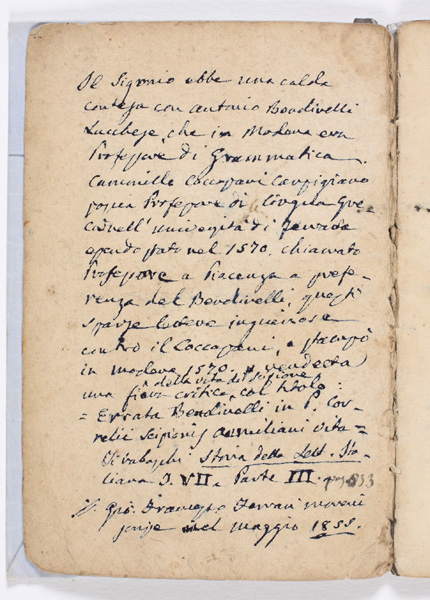 Il Sigonio ebbe una calda
contesa con Antonio Bendivelli
Lucchese, che in Modena era
Professore di Grammatica.
Cammillo Coccapani Carpigiano
Professore di lingua Gre
ca nell' università di
essendo stato nel 1570. chiamato
Professore a Piacenza a prefe-
renza del Bendivelli, questi
sparse lettere ingiuriose
contro il Coccapani, e stampò
in Modena 1570. vendetta
della vita di Scipione
una fiera critica col titolo:
= Errata Bendivelli in P. Cor-
nelii Scipionis Aemiliani vita =
Tiraboschi Storia della Lett. Ita-
liana T. VII. Parte III. pag.
Gio: Francesco Ferrari Moreni
nel maggio 1855.